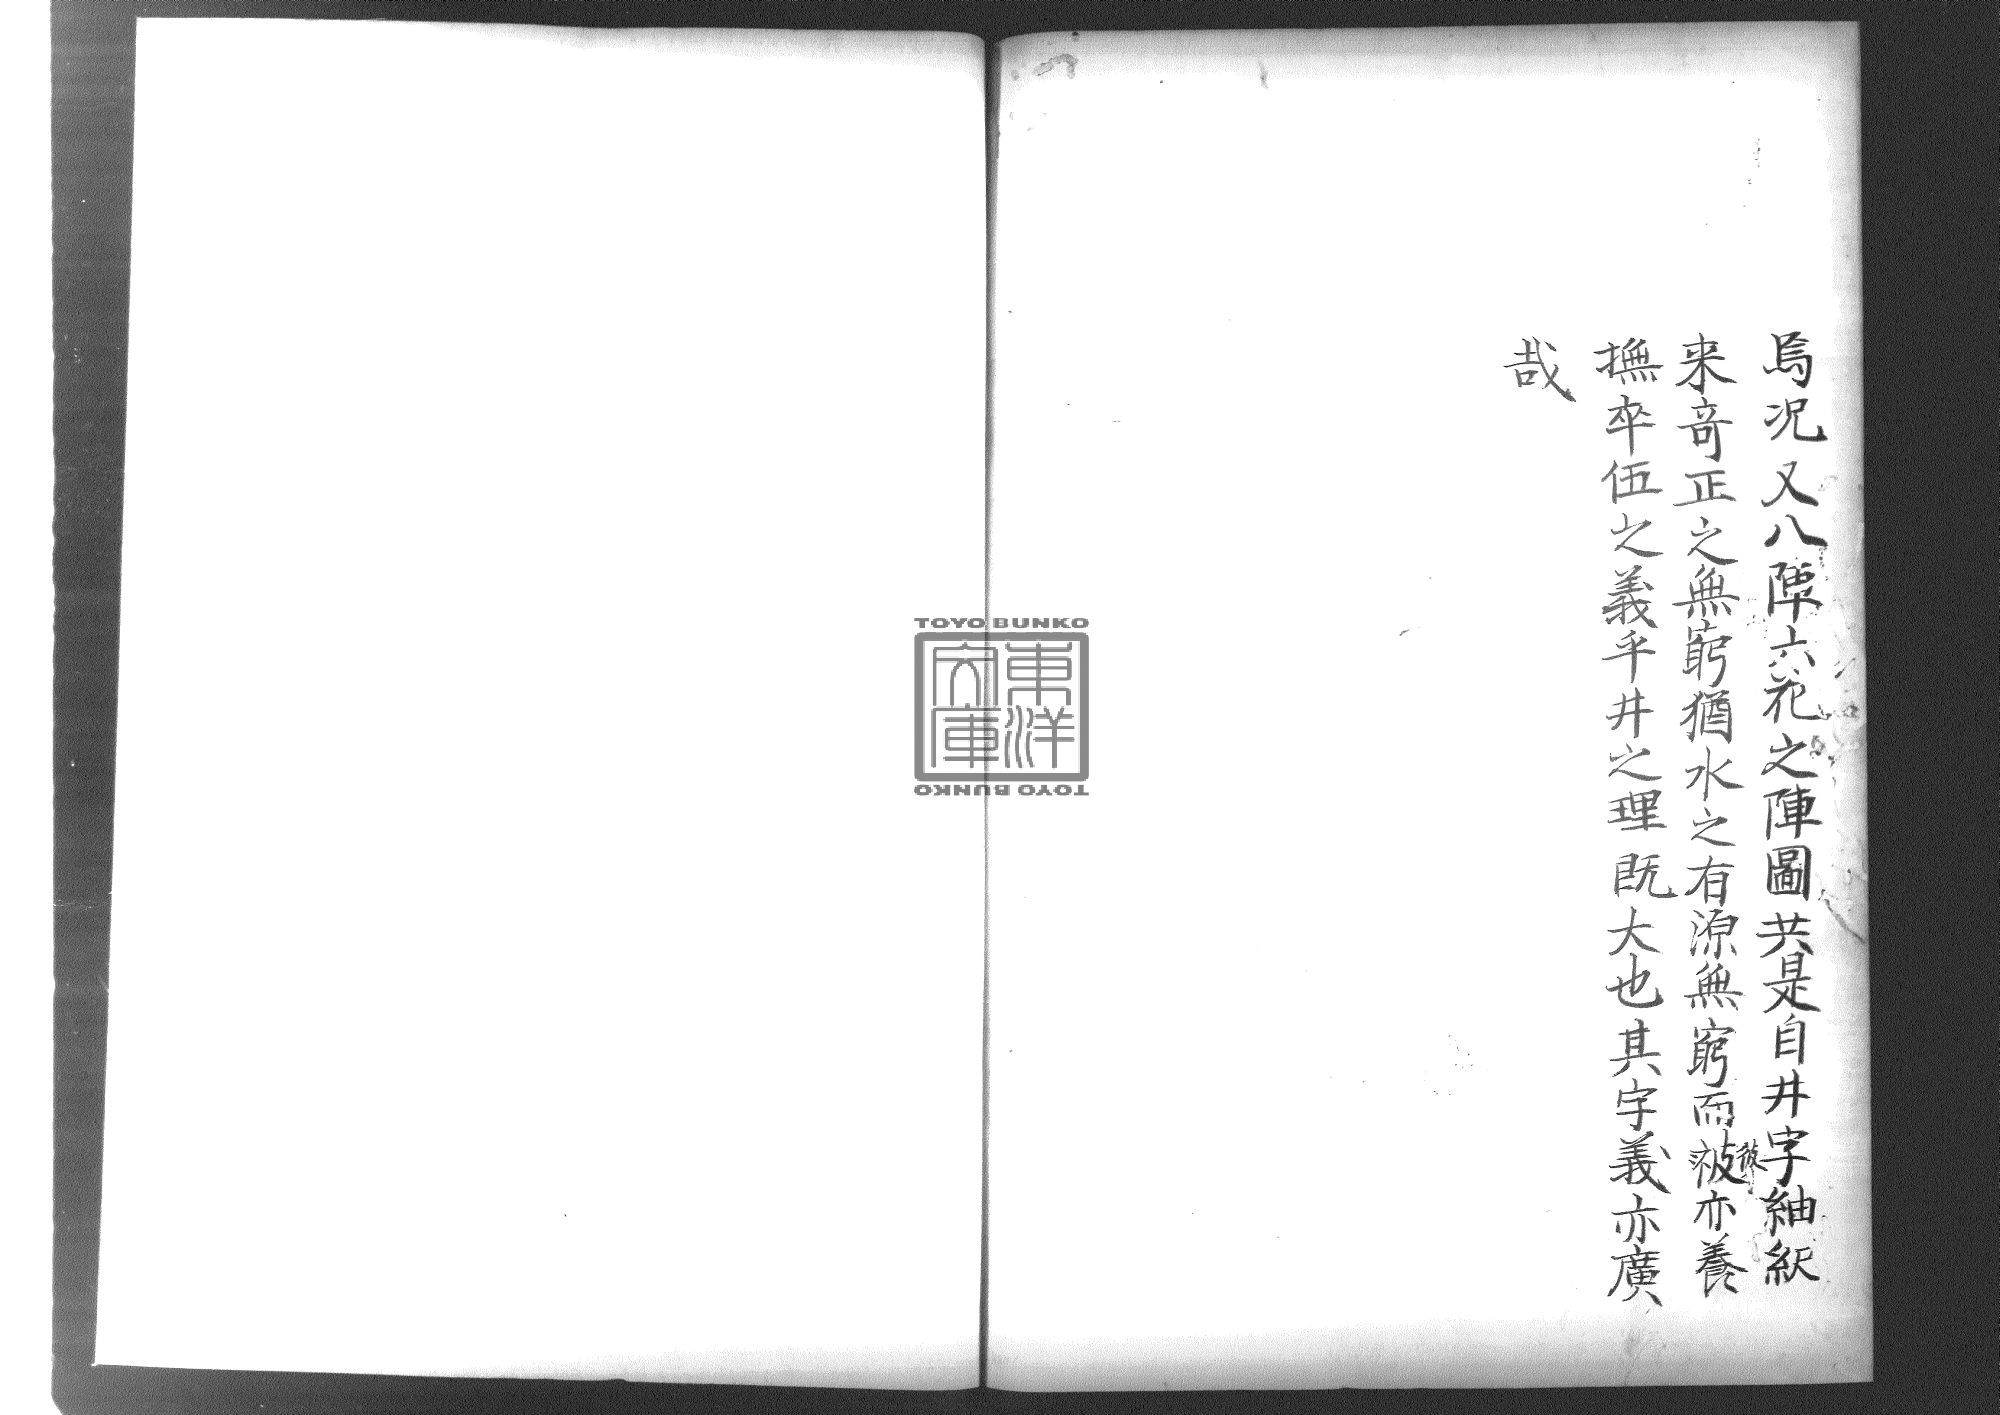 焉況又八陣六花之陣圖共是自井字紬紤
来竒正之無窮猶水之有源無窮而被亦養
彼
撫卒伍之義乎井之理既大也其字義亦廣
哉
TOYO BUNKO
東洋文庫
TOYO BUNKO